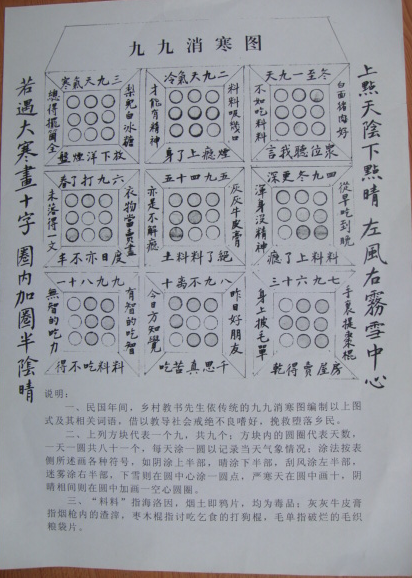 九九消寒图
上點天陰下點晴 左風右霧雪中心
天九一至冬
白面猪肉好
不如吃料料
言我聽位衆
冷氣天九二
料料吸幾口
才能有精神
身了上癮煙
寒氣天九三
梨兒白冰糖
盤煙洋下放
深更深九四
從早吃到晚
渾身沒精神
癮了上料料
五十四九五
灰灰牛皮膏
亦是不解癮
土料料了絕
春了打九六
衣物當賣盡
未落得一文
不亦日度
三十六九七
手裏提棗棍
身上披毛單
乾得賣屋房
十离不九八
昨日好朋友
今日方知覺
吃苦真思千
一十八九九
有智的吃智
無智的吃力
得不吃料料
若遇大寒畫十字 圈内加圈半陰晴
说明：
一、民国年间，乡村教书先生依传统的九九消寒图编制以上图
式及其相关词语。借以教导社会戒绝不良嗜好，挽救堕落乡民。
二、上列方块代表一个九，共九个；方块内的圆圈代表天数，
一天一圆共八十一个，每天涂一圆以记录当天气象情况；涂法按表
侧所述画各种符号，如阴涂上半部，晴涂下半部，刮风涂左半部，
迷雾涂右半部，下雪则在圆中心涂一圆点，严寒天在圆中画十，阴
晴相间则在圆中加画一空心圆圈。
三、“料料”指海洛因，烟土即鸦片，均为毒品；灰灰牛皮膏
指烟枪内的渣滓，枣木棍指讨吃乞食的打狗棍，毛单指破烂的毛织
粮袋片。